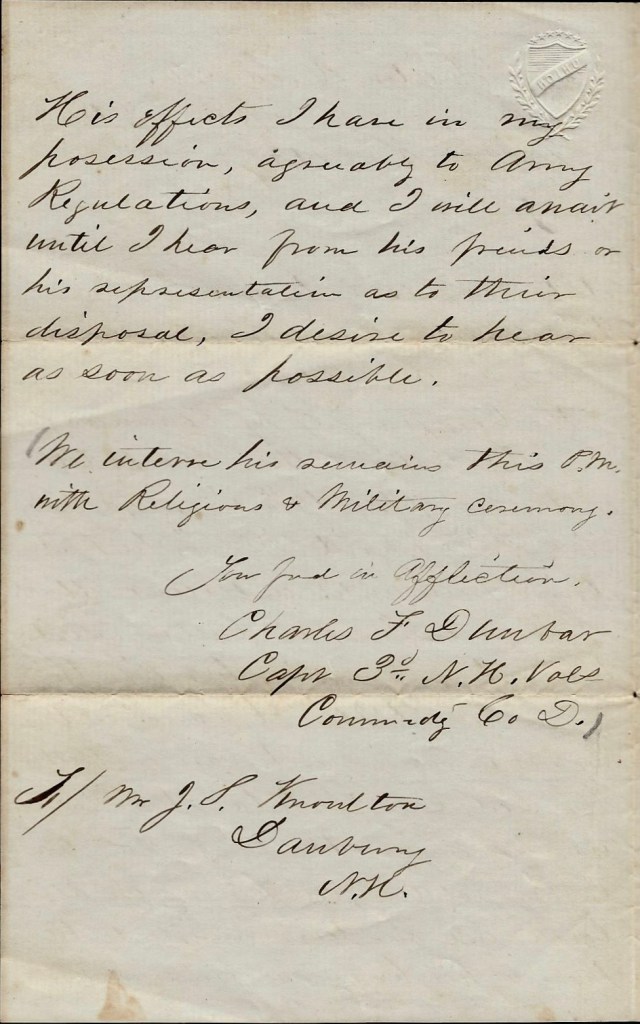 His effects I have in my
posession, agreeably to Army
Regulations, and I will await
until I hear from his friends or
his representation as to their
disposal, I desire to hear
as soon as possible.
We interre his remains this P.M.
with Religious & Military ceremony.
Your frnd in Affliction,
Charles F Dunbar
Capt 3d. N. H. Vols
Commdg Co D.
To/ Mr J. S. Knoulton
Danbury
N.H.